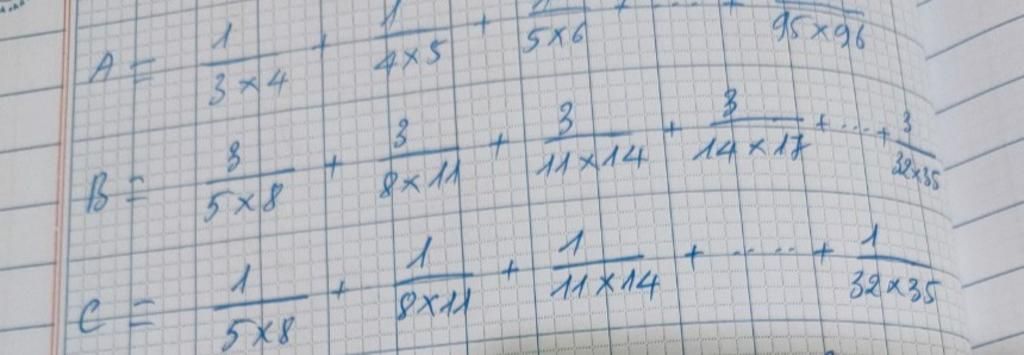 A = 1/3×4 + 1/4×5 + 1/5×6 + .... + 1/95×96
B = 3/5×8 + 3/8×11 + 3/11×14 + 3/14×17 + ... + 3/32×35
C = 1/5×8 + 1/8×11 + 1/11×14 + ..... + 1/32×35